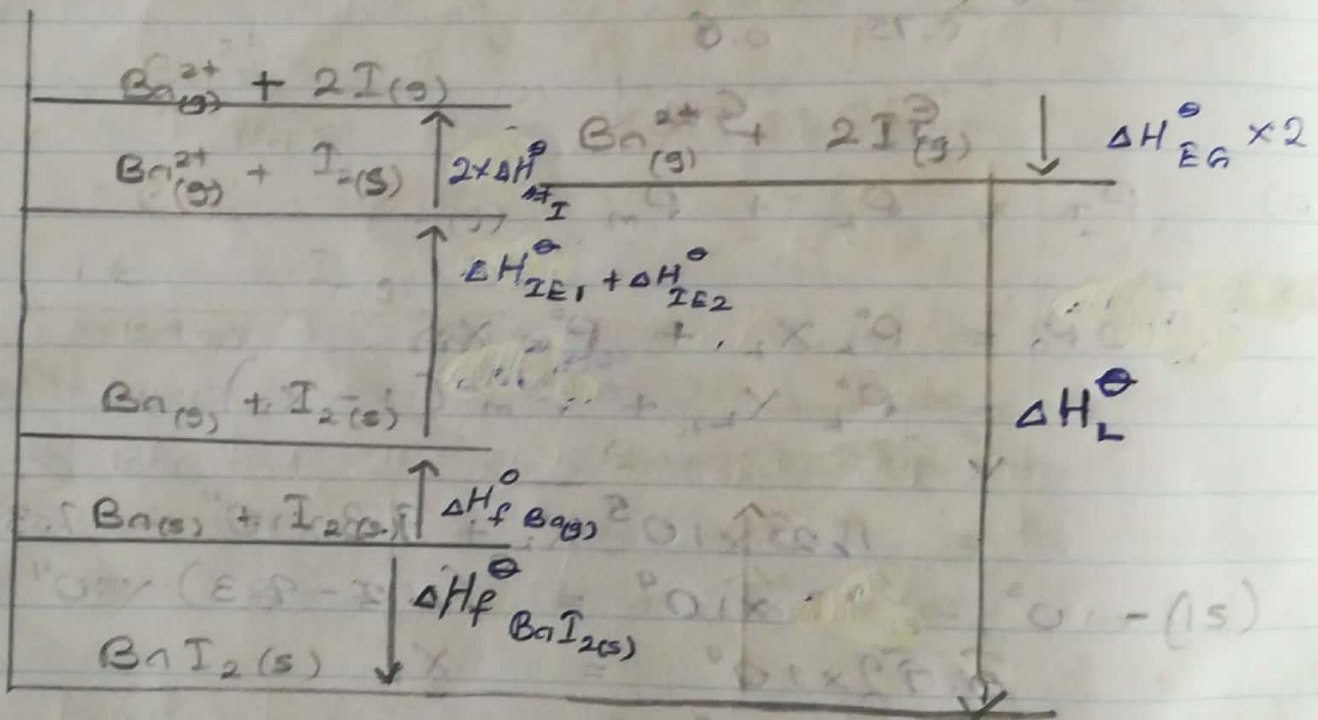 Ba²⁺(g) + 2I(g)
Ba²⁺(g) + I₂(s)
2×ΔH^⊖ at I
Ba²⁺(g) + 2I⁻(g)
ΔH^⊖ EG ×2
ΔH^⊖ IE1 + ΔH^⊖ IE2
Ba(g) + I₂(s)
ΔH^⊖ L
Ba(s) + I₂(s)
ΔH^⊖ f Ba(g)
ΔHf^⊖ BaI₂(s)
BaI₂(s)